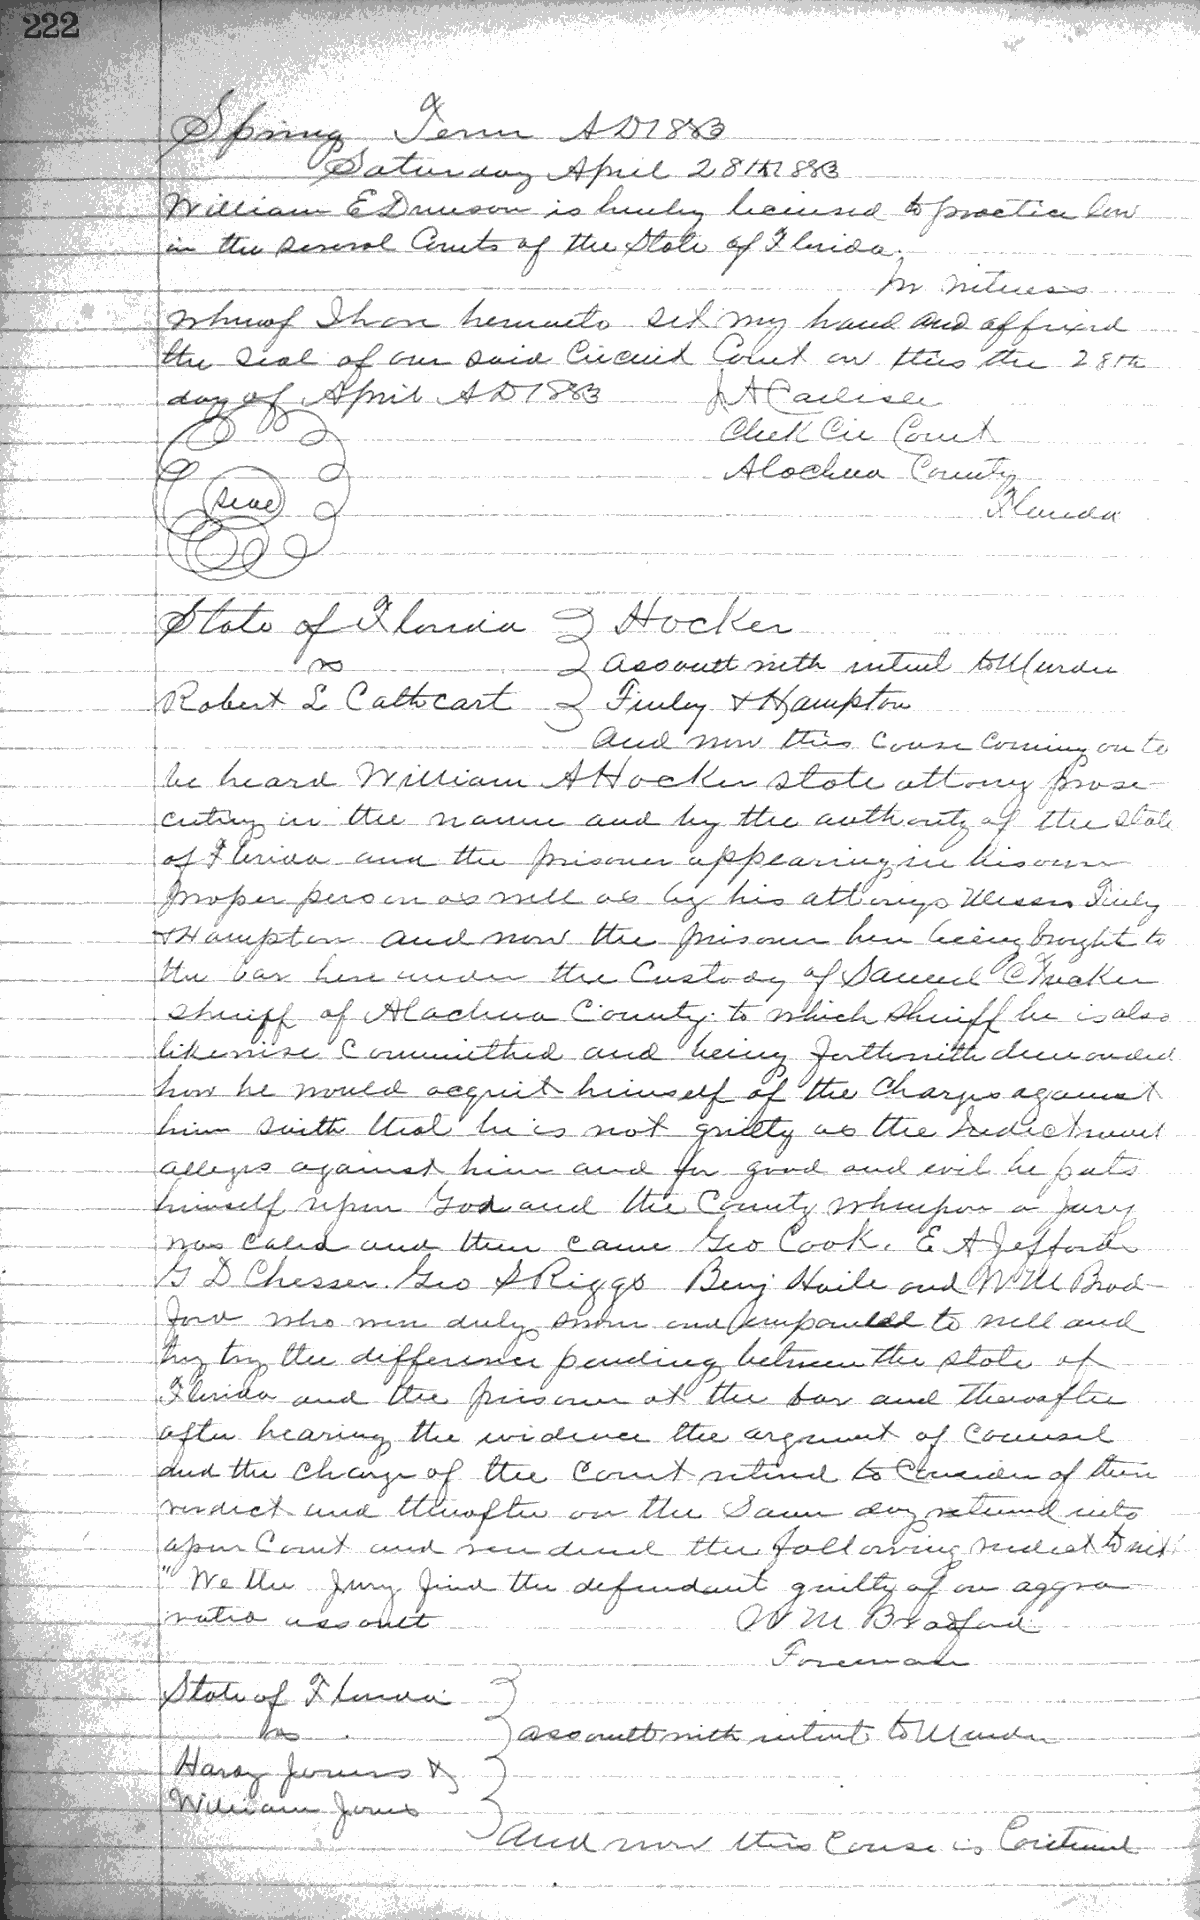 222
Spring Term AD 1883
Saturday April 28th 1883
William E is hereby licensed to practice law
in the several Courts of the State of Florida.
In witness
whereof I have hereunto set my hand and affixed
the seal of our said Circuit Court on this the 28th
day of April AD 1883 J A Carlisle
Clerk Cir Court
Alachua County
Florida
Seal
State of Florida } Hocker
vs } assault with intent to Murder
Robert L Cathcart } Finley & Hampton
And now this cause coming on to
be heard William A Hocker state attorny prose
cuting in the name and by the authority of the State
of Florida and the prisoner appearing in his own
proper person as well as by his attornys Messrs Finley
& Hampton and now the prisoner here being brought to
the bar here under the Custody of Samuel C Tucker
sheriff of Alachua County. to which sheriff he is also
likewise Committed and being forthwith demanded
how he would acquit himself of the Charges against
him saith that he is not guilty as the Indictment
alleges against him and for good and evil he puts
himself upon God and the County whereupon a Jury
was called and then came Geo Cook. E A Jeffords
G D Chesser. Geo S Riggs Benj Haile and W M Brad
ford who were duly sworn and empanelled to well and
try try the difference pending between the state of
Florida and the prisoner at the bar and thereafter
after hearing the evidence the argument of Counsel
and the Charge of the Court retired to Consider of their
verdict and thereafter on the Same day returned into
open Court and rendered the following verdict to wit
"We the Jury find the defendant guilty of an aggra
vated assault W M Bradford
Foreman
State of Florida }
vs } assault with intent to Murder
Hardy &
William Jones
And now this Cause is Continued